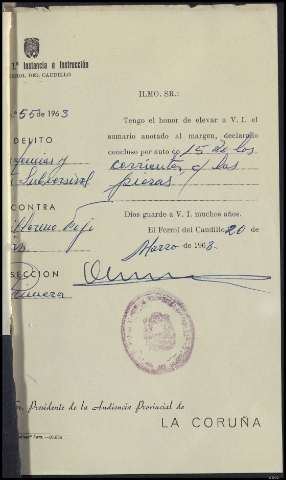 1.ª Instancia e Instrucción
FERROL DEL CAUDILLO
ILMO. SR.:
55 de 1963
Tengo el honor de elevar a V. I. el
sumario anotado al margen, declarado
DELITO
concluso por auto 15 de los
corrientes y las
Subversivas
piezas
CONTRA
Dios guarde a V. I. muchos años.
El Ferrol del Caudillo 20 de
Marzo de 1963.
SECCION
Primera
Presidente de la Audiencia Provincial de
LA CORUÑA